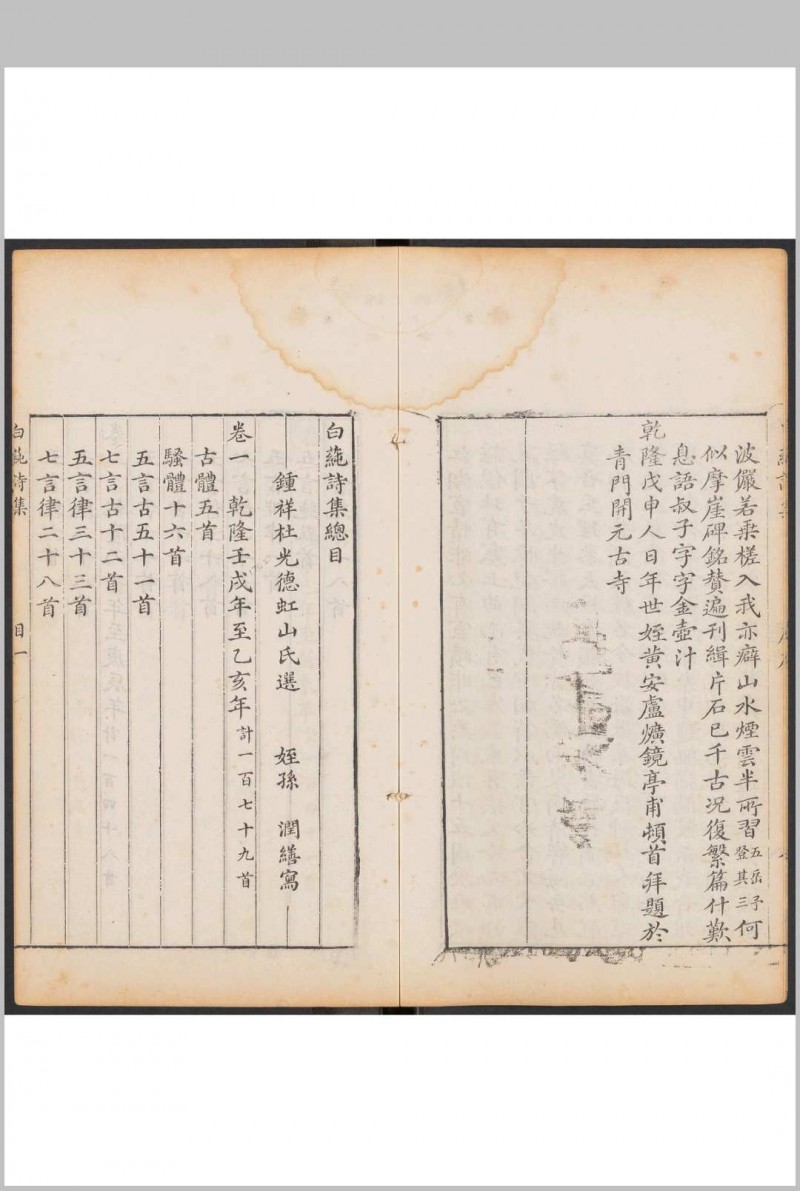 波儼若乘槎入我亦癖山水煙雲半所習五岳予登其三何
似摩崖碑銘贊遍刊緝片石已千古況復繁篇什歎
息語叔子字字金壺汁
乾隆戊申人日年世姪黃安盧爌鏡亭甫頓首拜題於
青門開元古寺
白蒓詩集總目
鍾祥杜光德虹山氏選 姪孫 潤繕寫
卷一 乾隆壬戌年至乙亥年計一百七十九首
古體五首
騷體十六首
五言古五十一首
七言古十二首
五言律三十三首
七言律二十八首
白蒓詩集 目一